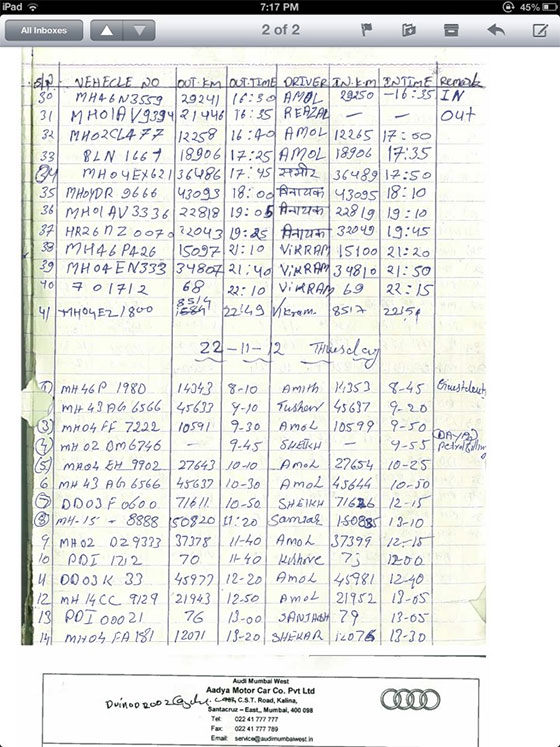 iPad 7:17 PM 45%
All Inboxes 2 of 2
S/N VEHECLE NO OUT.KM OUT.TIME DRIVER IN.KM IN TIME Remark
30 MH46N3559 29241 16:30 AMOL 29250 -16:35 IN
31 MH01AV9394 21446 16:35 REAZAL — — Out
32 MH02CLA77 12258 16:40 AMOL 12265 17:00
33 BLN 1667 18906 17:25 AMOL 18906 17:35
34 MH04EX621 36486 17:45 समीर 36489 17:50
35 MH01DR 9666 43093 18:00 विनायक 43095 18:10
36 MH01AV3336 22818 19:05 विनायक 22819 19:10
37 HR26MZ0070 32043 19:25 विनायक 32049 19:45
38 MH46PA26 15097 21:10 VIKRAM 15100 21:20
39 MH04EN333 34807 21:40 VIKRAM 34810 21:50
40 701712 68 22:10 VIKRAM 69 22:15
8514
41 MH04EZ1800 22:49 Vikram 8517
22-11-12 Thursday
1 MH46P 1980 14343 8-10 Amith 14353 8-45
MH 43 AG 6566 45633 9-10 Tushar 45637 9-20
3 MH04 FF 7222 10591 9-30 AMOL 10599 9-50
4 MH 02 BM6746 — 9-45 SHEIKH — 9-55
5 MH04 EH 9902 27643 10-10 AMOL 27654 10-25
6 MH 43 AG 6566 45637 10-30 AMOL 45644 10-50
7 DD03F0600 71611 10-50 SHEIKH 71626 12-15
8 MH-15 - 8888 150820 11:20 150885 13-10
9 MH02 DZ9333 37378 11-40 AMOL 37399 12-15
10 PDI 1712 70 11-40 Kishore 12:00
11 DD03K 33 45977 12-20 AMOL 45981 12-40
12 MH 14CC 9129 21943 12-50 AMOL 21952 13-05
13 PDI 00021 76 13-00 SANTOSH 79 13-05
14 MH04 FA 181 12071 13-20 SHEKAR 12076 13-30
Audi Mumbai West
Aadya Motor Car Co. Pvt Ltd
C.S.T. Road, Kalina,
Santacruz – East,, Mumbai, 400 098
Tel: 022 41 777 777
Fax: 022 41 777 789
Email: service@audimumbaiwest.in